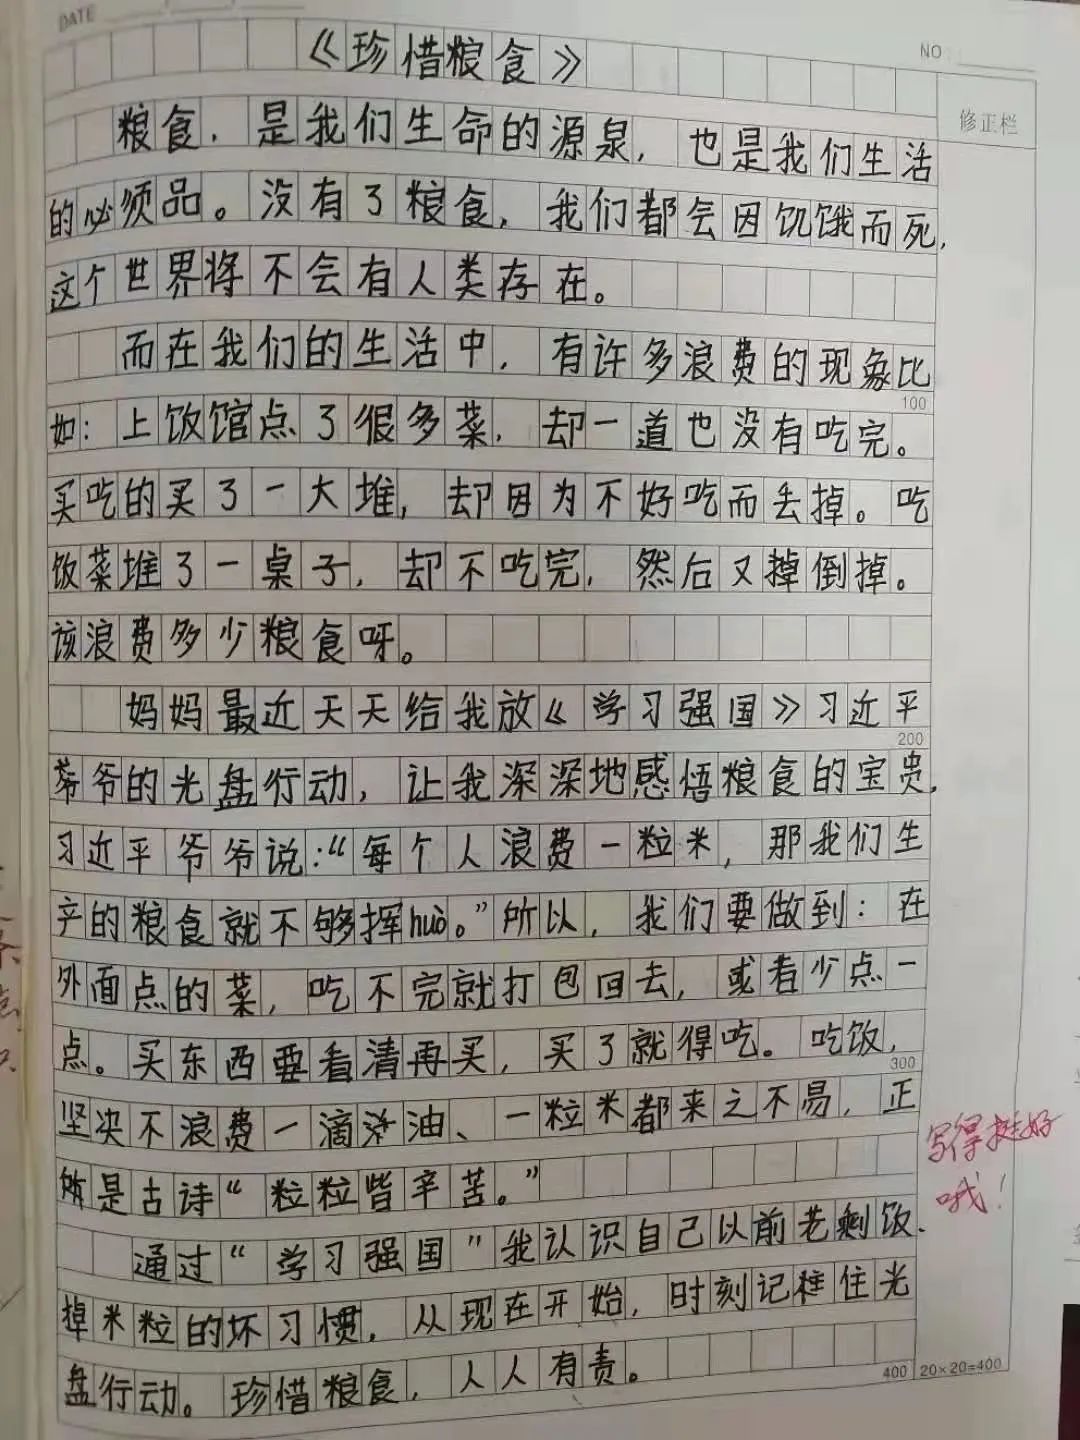 DATE
NO
《珍惜粮食》
修正栏
粮食，是我们生命的源泉，也是我们生活
的必须品。没有了粮食，我们都会因饥饿而死，
这个世界将不会有人类存在。
而在我们的生活中，有许多浪费的现象比
100
如：上饭馆点了很多菜，却一道也没有吃完。
买吃的买了一大堆，却因为不好吃而丢掉。吃
饭菜堆了一桌子，却不吃完，然后又掉倒掉。
该浪费多少粮食呀。
妈妈最近天天给我放《学习强国》习近平
200
爷爷的光盘行动，让我深深地感悟粮食的宝贵，
习近平爷爷说：“每个人浪费一粒米，那我们生
产的粮食就不够挥huò。”所以，我们要做到：在
外面点的菜，吃不完就打包回去，或者少点一
点。买东西要看清再买，买了就得吃。吃饭，
300
坚决不浪费一滴油、一粒米都来之不易，正
所是古诗“粒粒皆辛苦。”
写得挺好
哦！
通过“学习强国”我认识自己以前老剩饭、
掉米粒的坏习惯，从现在开始，时刻记住光
盘行动。珍惜粮食，人人有责。
400 20×20=400